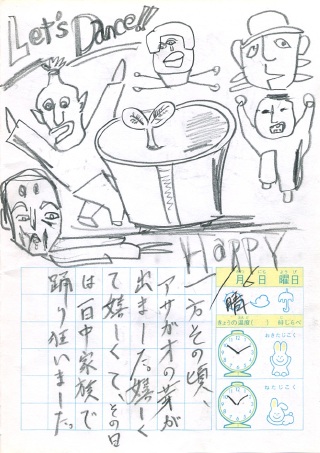 Let's Dance!!!
HAPPY
一方その頃、
アサガオの芽が
出ました。嬉しく
て嬉しくて、その日
は一日中家族で
踊り狂いました。
月 日 曜日
晴
きょうの温度( ) 日しるべ
おきたじこく
ねたじこく